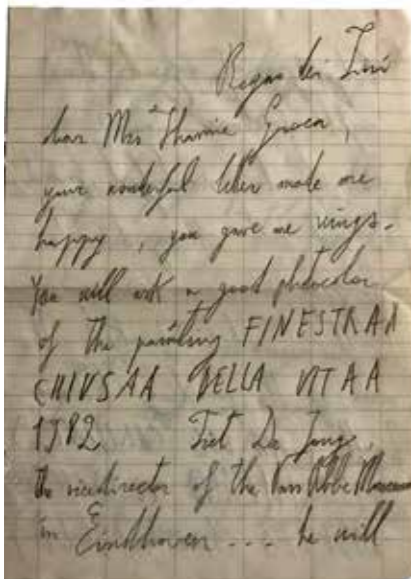 dear Mrs Groen,
your wonderful letter made me
happy, you gave me wings.
You will ask a good photocolor
of the painting FINESTRAA
CHIUSAA DELLA VITAA
1982 De Jong,
the vicedirector of the Van Abbe Museum
in Eindhoven --- he will